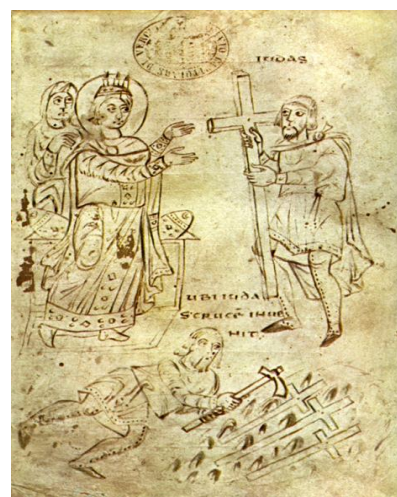 IUDAS
UBI IUDA
S CRUCE INUE
NIT.